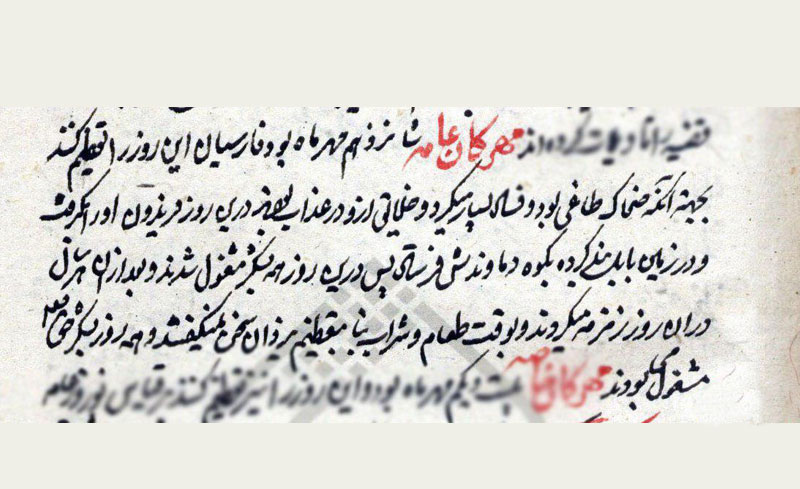 قضیه را تاویلات کرده‌اند مهرکان عامه شانزدهم مهرماه بود فارسیان این روز را تعظیم کنند
بجهة آنکه ضحاک طاغی بود و فساد بسیار میکرد و خلایق ازو در عذاب بودند درین روز فریدون اورا بگرفت
و در زمین بابل بند کرده بکوه دماوندش فرستاد پس درین روز همه بشکر مشغول شدند و بعد از ان هر سال
دران روز زمزمه میکردند و بوقت طعام و شراب بنابر تعظیم یزدان سخن نمیگفتند و همه روز بشکر حق
مشغول می بودند مهرکان خاصه بیست و یکم مهرماه بود و این روز را نیز تعظیم کنند بر قیاس نوروز